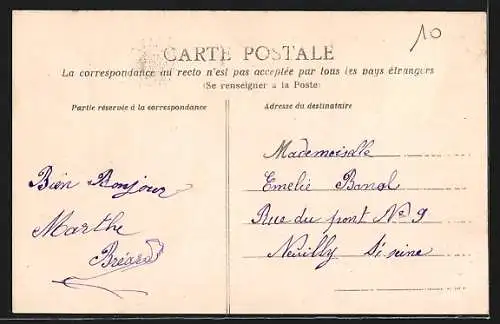 10
CARTE POSTALE
La correspondance au recto n'est pas acceptée par tous les pays étrangers
(Se renseigner à la Poste)
Partie réservée à la correspondance
Adresse du destinataire
Bien Bonjour
Marthe
Mademoiselle
Emelie
Rue du pont No 9
Neuilly St. seine